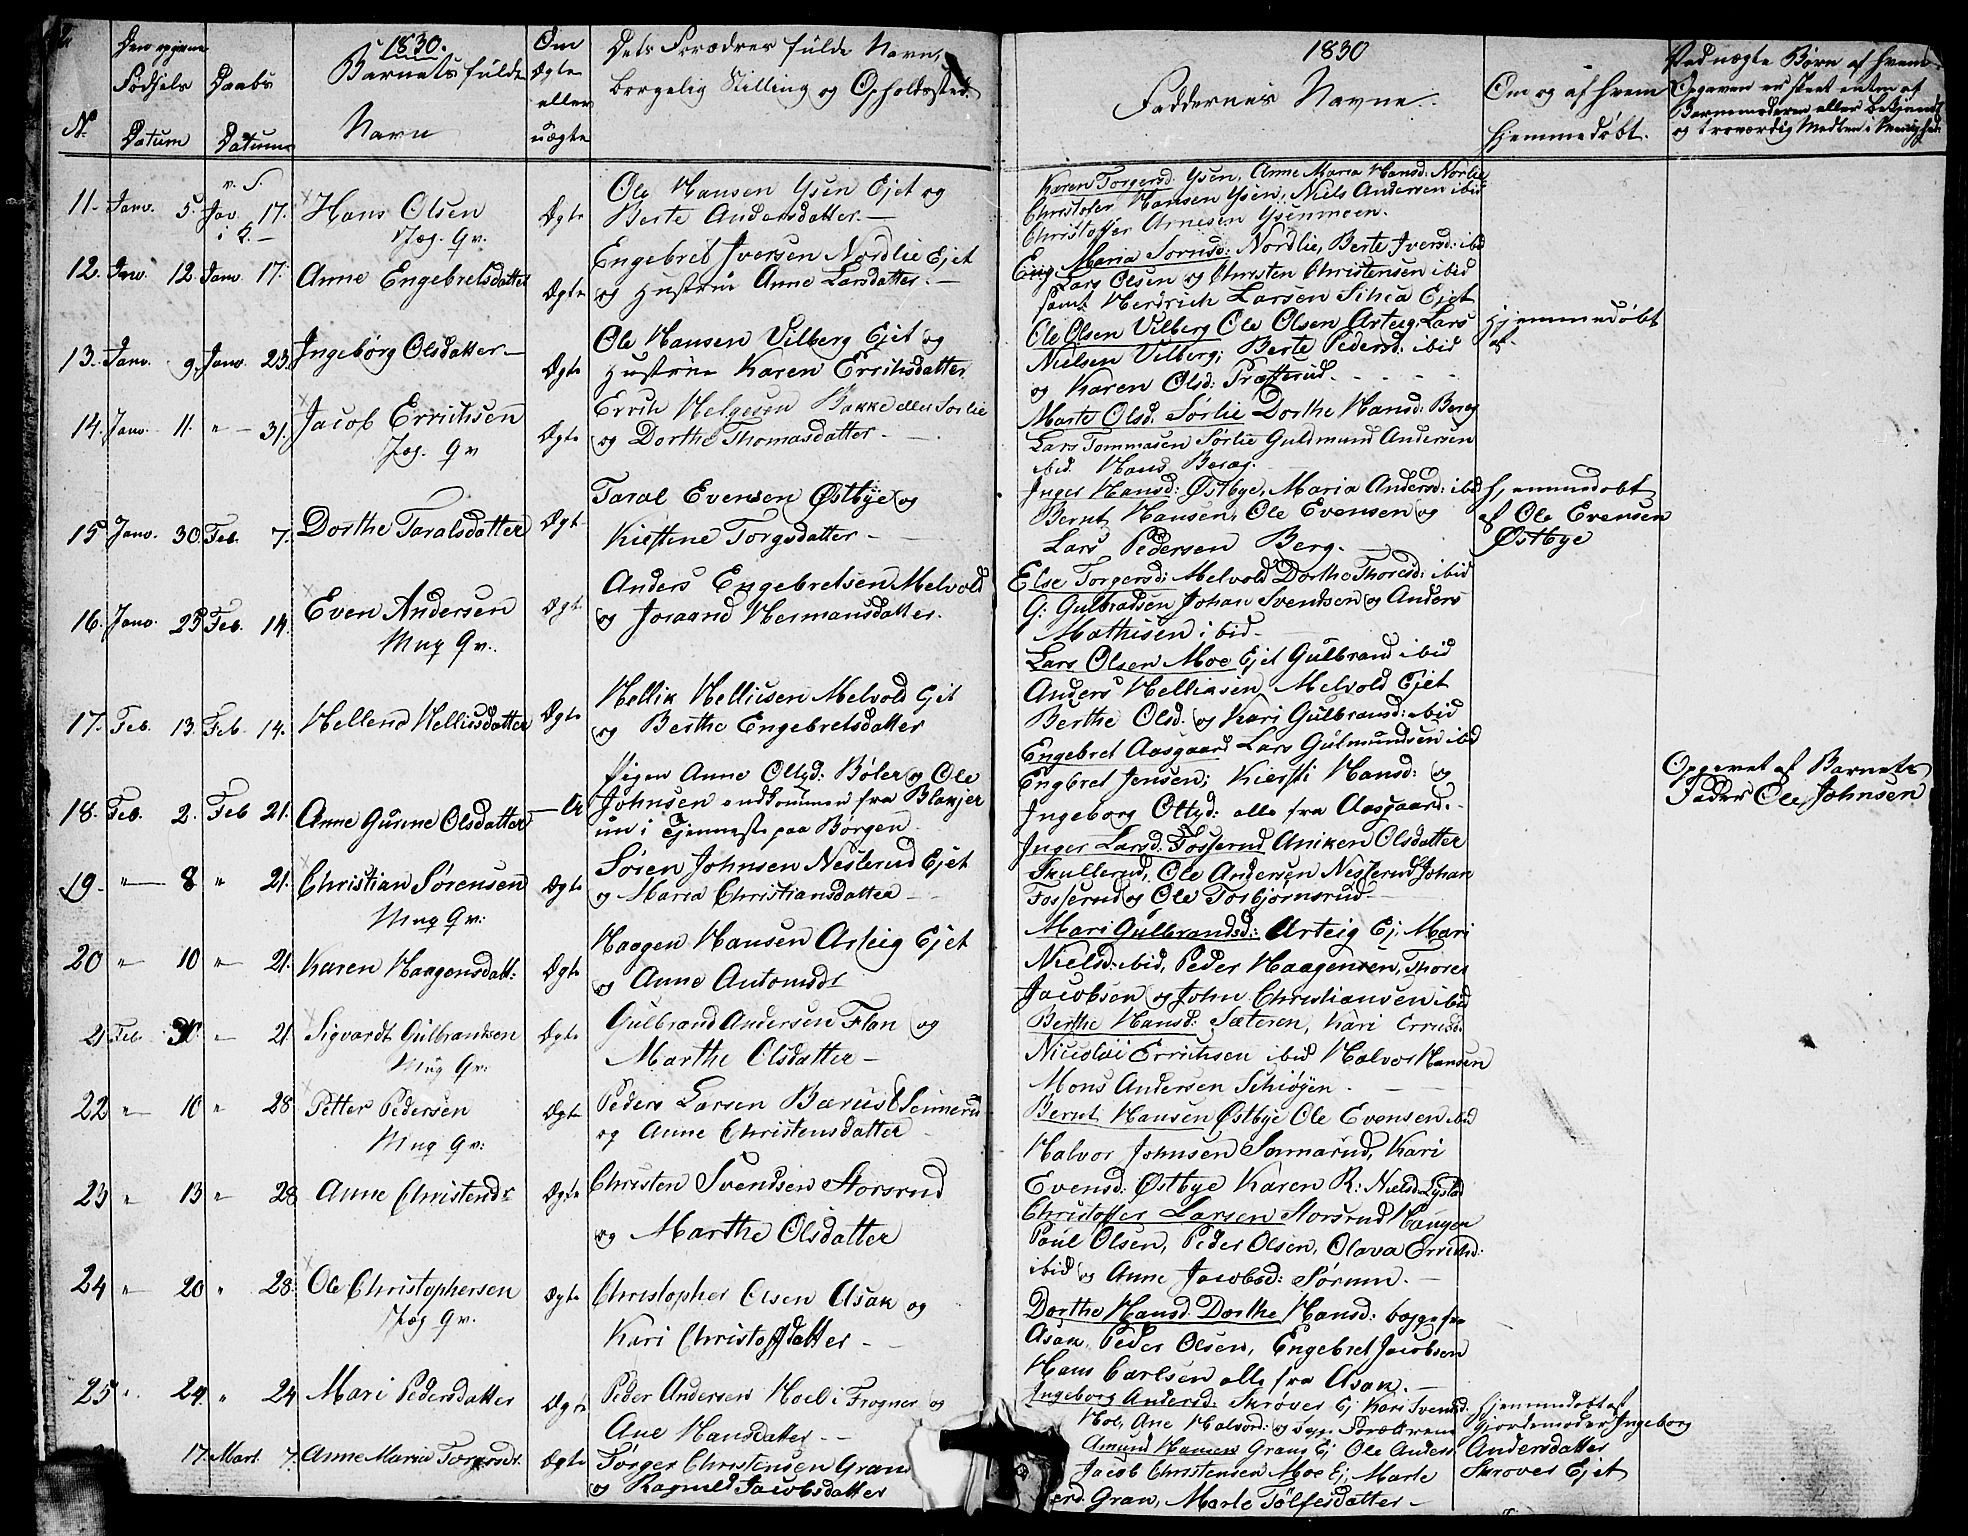 1830.
Den nyfødtes Fødsels Datum
Daabs Datum
Barnets fulde Navn
Om Ægte eller uægte
Dets Forældres fulde Navn, borgelig Stilling og Opholdssted.
No
11. Janv. 5. Jav. 17. Hans Olsen Ægte Ole Hansen Ysen Ejet og
i K. Jæg. Qv. Berte Andersdatter. —
12. Janv. 12. Janv. 17. Anne Engebretsdatter Ægte Engebret Iversen Nordlie Ejet
og Hustrue Anne Larsdatter. —
13. Janv. 9. Janv. 23. Ingebørg Olsdatter — Ægte Ole Hansen Vilberg Ejet og
Hustrue Karen Erriksdatter
14. Janv. 11. " — 31. Jacob Errichsen Ægte Errik Helgesen Bakke eller Sørlie
Jæg. Qv og Dorthe Thomasdatter. —
15 Janv. 30. Feb. 7. Dorthe Taralsdatter Ægt. Taral Evensen Østbye og
Kirstine Torgsdatter. —
16. Janv. 25 Feb. 14. Even Andersen Ægt. Anders Engebretsen Melvold
Mug Qv. og Joraand Hermansdatter.
17. Feb. 13. Feb. 14. Hellene Hellicsdatter Ægte Hellik Hellicsen Melvold Ejet
og Berthe Engebretsdatter
18. Feb. 2. Feb 21. Anne Gunne Olsdatter — U Pigen Anne Ottesd: Bøler og Ole
Johnsen endkommen fra Blakjer
nu i Tjenneste paa Børgen
19. " — 8 " 21. Christian Sørensen Ægte Søren Johnsen Nesterud Ejet
Mug Qv: og Maria Christiansdatter —
20 " 10 " 21. Karen Haagensdatt: Ægte Haagen Hansen Arteig Ejet
og Anne Antonisdr
21 Feb. " 21 Sigvardt Gulbrandsen Ægte Gulbrand Andersen Flan og
Mug Qv: Marthe Olsdatter —
22 " 10 " 28 Petter Pedersen Ægte Peders Larsen
Mug Qv: og Anne Christensdatter
23 " 13 " 28 Anne Christensdr Ægte Christen Svendsen Storsrud
og Marthe Olsdatter
24 " 20 " 28. Ole Christophersen Ægte Christopher Olsen Asak og
Jæg Qv. Kari Christoffsdatter —
25 " 24. " 24 Mari Pedersdatter Ægte Peder Andersen Hoel i Frogner og
Ane Hansdatter —
17. Mart. 7. Anne Maria Torgersdr. Ægte Tørger Christensen Gran
og Ragnild Jacobsdatter
1830
Faddernes Navne.
Om og af hvem hjemmedøbt.
Ved uægte Børn af hvem Opgaven er skeet enten af Barnemoderen eller bekjendt og troværdig Medlem i Menighed:
Karen Torgersd. Ysen, Anne Maria Hansd: Norlie
Christofer Hansen Ysen, Niels Andersen ibid
Christoffer Arnesen Ysenmoen.
Maria Sørnsd: Nordlie, Berte Iversd: ibid
Lars Olsen og Christen Christensen ibid
samt Hendrich Larsen Ejet
Ole Olsen Vilberg Ole Olsen Arteig, Lars hjemmedøbt
Nielsen Vilberg; Berte Pedersd: ibid af.
og Karen Olsd: Præsterud.
Marte Olsd. Sørlie Dorthe Hansd: Berag
Lars Tommasen Sørlie Guldmund Andersen
ibid. Hans Berag.
Inger Hansd: Østbye, Maria Andersd: ibid hjemmedøbt
Bernt Hansen, Ole Evensen og af Ole Evensen
Lars Pedersen Berg. — Østbye
Else Torgersd: Melvold Dorthe Thoresd: ibid
G: Gulbradsen Johan Svendsen og Anders
Mathisen ibid.
Lars Olsen Moe Ejet Gulbrand ibid
Anders Helliksen Melvold Ejet
Berthe Olsd. og Kari Gulbransd: ibid
Engebret Aasgaard Lars Gulmundsen ibid
Engbret Jensen; Kiersti Hansd: og
Ingeborg Ottesd: alle fra Aasgaard.
Opgevet af Barnets
Fader Ole Johnsen
Inger Larsd: Fosserud Aniken Olsdatter
Skullerud, Ole Andersen Nesterud Johan
Fosserud og Ole Torbjørnsrud
Mari Gulbrandsd: Arteig Ej. Mari
Nielsd: ibid, Peder Haagensen, Thores
Jacobsen og John Christiansen ibid
Berthe Hansd: Sæteren, Kari
Nicolai Errichsen ibid Halvor Hansen
Mons Andersen Schiøyen.
Bernt Hansen Østbye Ole Evensen ibid
Halvor Johnsen Sonnarud, Kari
Evensd: Østbye Karen R: Nielsd Lystad
Christoffer Larsen Storsrud Haugen
Poul Olsen, Peder Olsen, Olava
ibid og Anne Jacobsd: Sørum. —
Dorthe Hansd: Dorthe Hansd: begge fra
Asak Peder Olsen, Engebret Jacobsen
Hans Carlsen alle fra Asak. —
Ingeborg Andersd: Skrøver Ej Kari Svensd. hjemmedøbt af
Hoel, Ane Halvord: og Forældrene Gjordemoder Ingeborg
Amund Hansen Grans Ej Ole Anders. Andersdatter
Jacob Christensen Moe Ej, Marte Skrøver Ejet
Gran, Marte Tølfesdatter —